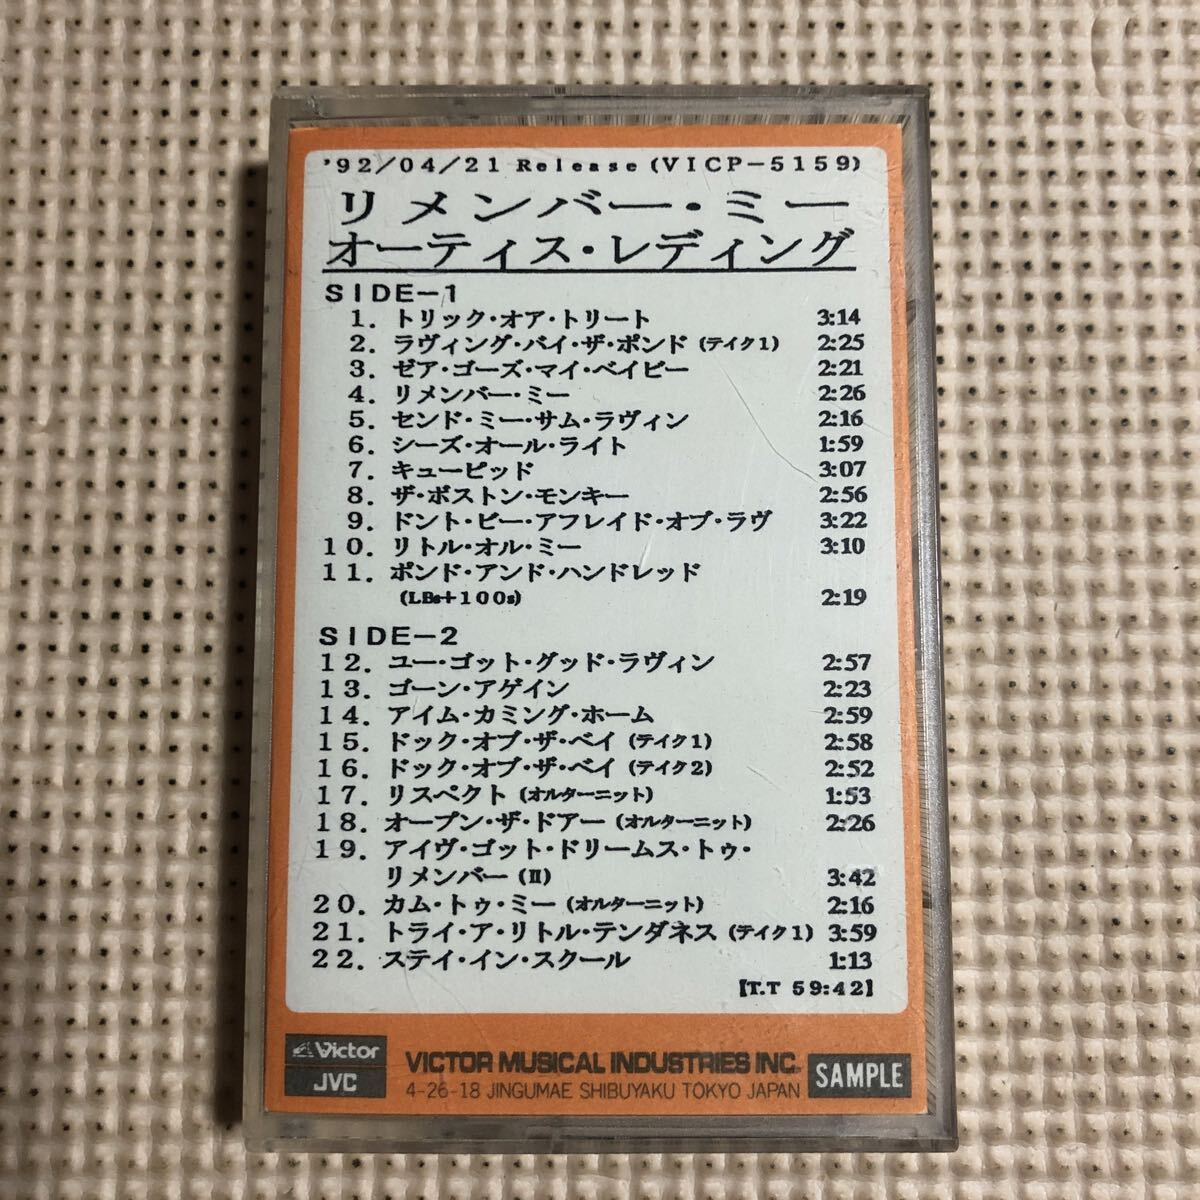 '92/04/21 Release (VICP-5159)
リメンバー・ミー
オーティス・レディング
SIDE-1
1. トリック・オア・トリート 3:14
2. ラヴィング・バイ・ザ・ポンド (テイク1) 2:25
3. ゼア・ゴーズ・マイ・ベイビー 2:21
4. リメンバー・ミー 2:26
5. センド・ミー・サム・ラヴィン 2:16
6. シーズ・オール・ライト 1:59
7. キューピッド 3:07
8. ザ・ボストン・モンキー 2:56
9. ドント・ビー・アフレイド・オブ・ラヴ 3:22
10. リトル・オル・ミー 3:10
11. ポンド・アンド・ハンドレッド
(LBs+100s) 2:19
SIDE-2
12. ユー・ゴット・グッド・ラヴィン 2:57
13. ゴーン・アゲイン 2:23
14. アイム・カミング・ホーム 2:59
15. ドック・オブ・ザ・ベイ (テイク1) 2:58
16. ドック・オブ・ザ・ベイ (テイク2) 2:52
17. リスペクト (オルターニット) 1:53
18. オープン・ザ・ドアー (オルターニット) 2:26
19. アイヴ・ゴット・ドリームス・トゥ・
リメンバー (II) 3:42
20. カム・トゥ・ミー (オルターニット) 2:16
21. トライ・ア・リトル・テンダネス (テイク1) 3:59
22. ステイ・イン・スクール 1:13
【T.T 59:42】
Victor
JVC
VICTOR MUSICAL INDUSTRIES INC.
4-26-18 JINGUMAE SHIBUYAKU TOKYO JAPAN
SAMPLE